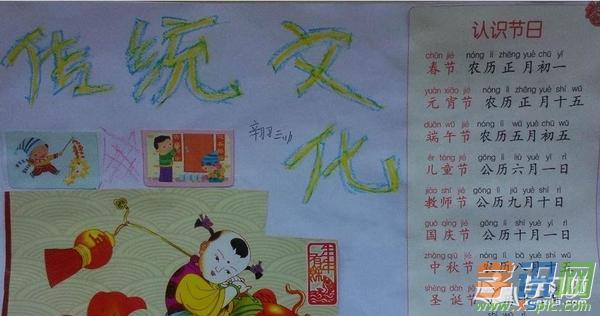 传统文
化
认识节日
chūn jié nóng lì zhēng yuè chū yī
春节 农历正月初一
yuán xiāo jié nóng lì zhēng yuè shí wǔ
元宵节 农历正月十五
duān wǔ jié nóng lì wǔ yuè chū wǔ
端午节 农历五月初五
ér tóng jié gōng lì liù yuè yī rì
儿童节 公历六月一日
jiào shī jié gōng lì jiǔ yuè shí rì
教师节 公历九月十日
guó qìng jié gōng lì shí yuè yī rì
国庆节 公历十月一日
zhōng qiū jié nóng lì bā yuè shí wǔ
中秋节
shèng dàn jié
圣诞节
学识网